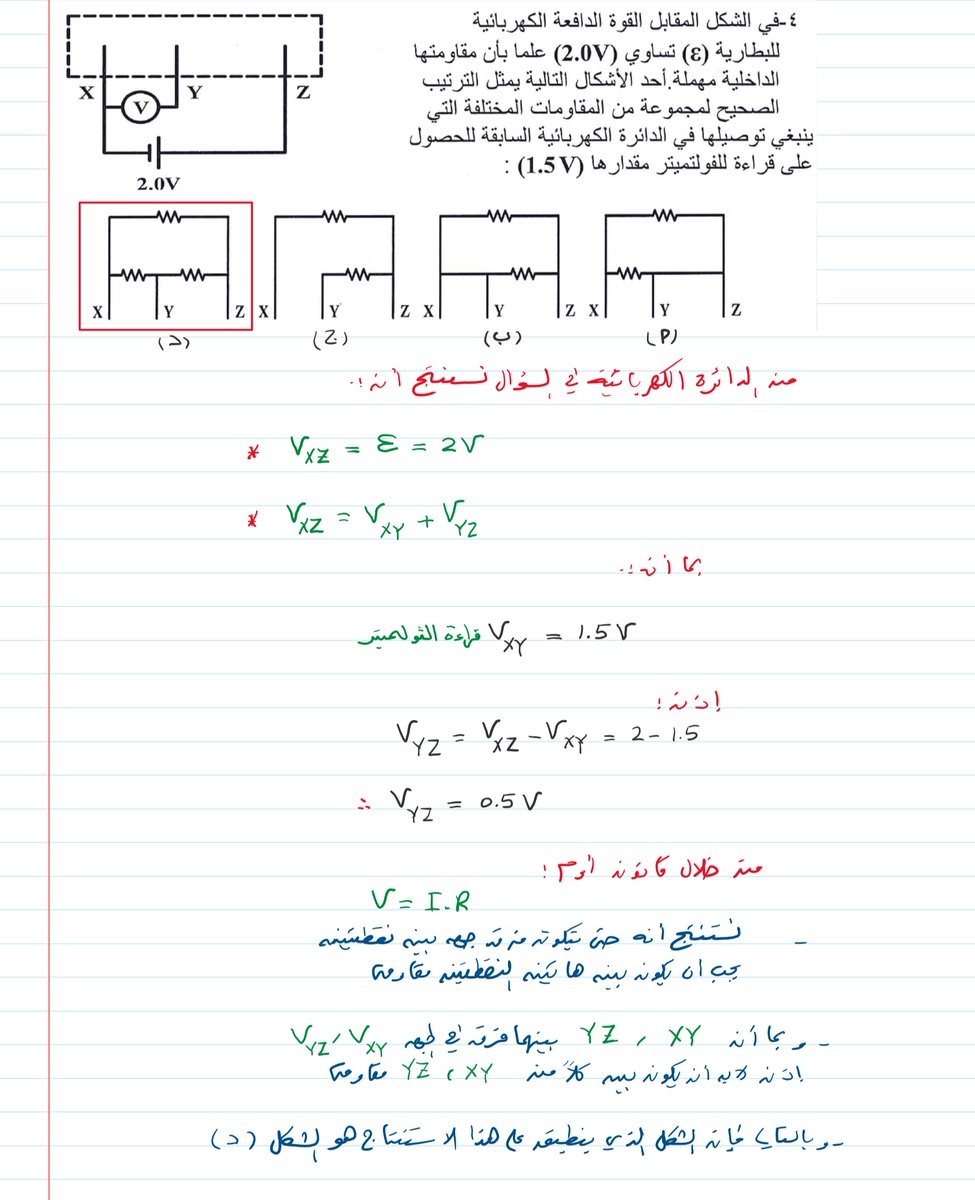 ٤-في الشكل المقابل القوة الدافعة الكهربائية
للبطارية (ε) تساوي (2.0V) علما بأن مقاومتها
الداخلية مهملة.أحد الأشكال التالية يمثل الترتيب
الصحيح لمجموعة من المقاومات المختلفة التي
ينبغي توصيلها في الدائرة الكهربائية السابقة للحصول
على قراءة للفولتميتر مقدارها (1.5V) :
X V Y Z
2.0V
X Y Z X Y Z X Y Z X Y Z
(د) (ج) (ب) (P)
من الدائرة الكهربائية في السؤال نستنتج أن :
* V_XZ = ε = 2V
* V_XZ = V_XY + V_YZ
بما أن :
قراءة الڤولتميتر V_XY = 1.5 V
إذن :
V_YZ = V_XZ - V_XY = 2 - 1.5
∴ V_YZ = 0.5 V
من خلال قانون أوم :
V = I.R
- نستنتج أنه حتى يكون فرق جهد بين نقطتين
يجب أن يكون بين هاتين النقطتين مقاومة
- وبما أن XY ، YZ بينهما فرق في الجهد V_XY ، V_YZ
إذن لابد أن يكون بين كلاً من XY ، YZ مقاومة
- وبالتالي فإن الشكل الذي ينطبق على هذا الاستنتاج هو الشكل (د)